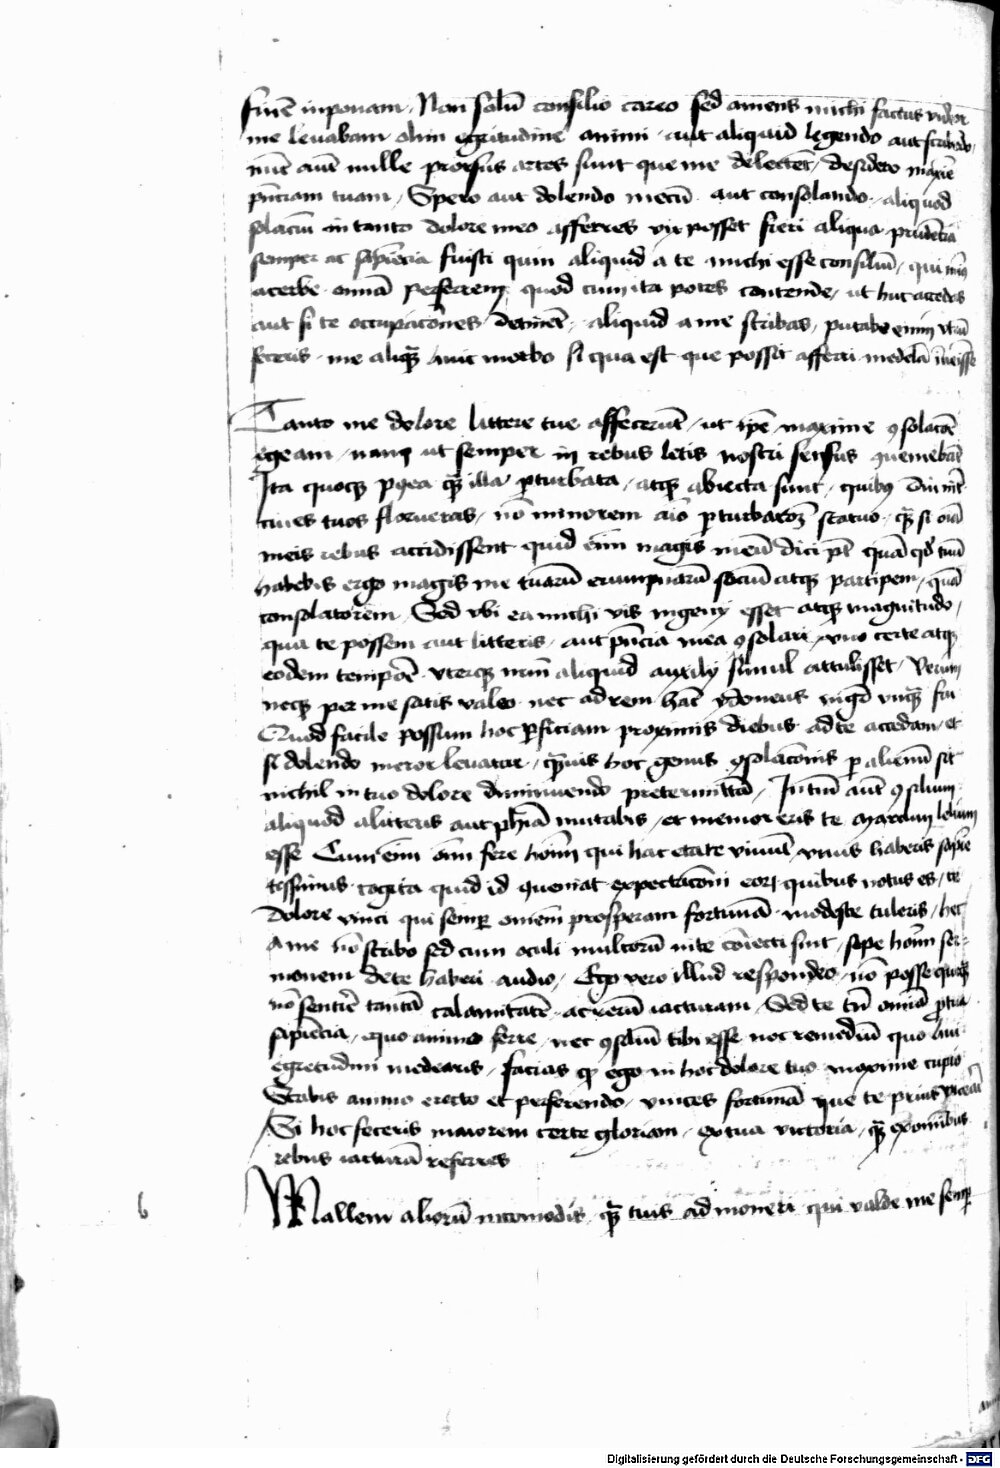 finē inponam. Non solū consilio careo sed amens michi factus videor
me levabam olim egritudine animi aut aliquid legendo aut scribēdo,
nūc autē nulle prorsus artes sunt que me delectēt, desidero maxīe
pn̄ciam tuam, Spero aut dolendo mecū aut consolando aliquod
solaciū in tanto dolore meo afferres vix posset fieri aliqua prudētia
semper ac sapiēcia fuisti quin aliquid a te michi esse consiliū, qui mīus
acerbe omīa perferrem, quod cum ita potes contende, ut huc accedas
aut si te occupacōnes detinēt, aliquid a me scribas, putabo enim
feceris me aliqꝫ huic morbo si qua est que possit afferri medelā
Tanto me dolore littere tue affecerūt, ut ip̄e maxime ꝯsolacōe
egeam, nanqꝫ ut semper in rebus letis nostri sensus
Ita quoqꝫ illa perturbata, atqꝫ abiecta sunt, quibꝰ
cives tuos florueras, nō minorem aīo ꝑturbacōꝫ statuo, qꝫ si oīa
meis rebus accidissent quid eīm magis meū dici pōt quā qd̄ tuū
habebis ergo magis me tuarū erumpnarū sociū atqꝫ partipem, quā
consolatorem, Sed vbi ea michi vis ingenij esset atqꝫ magnitudo,
qua te possem aut litteris, aut pn̄cia mea ꝯsolari, vno certe atqꝫ
eodem tempōe uterqꝫ nr̄m aliquid auxilij simul attulisset, Verum
neqꝫ per me satis valeo nec ad rem hāc ydoneus unqꝫ fui
Quod facile possum hoc ꝑficiam proximis diebus ad te accedam, et
si dolendo meror levatur, qꝫvis hoc genus ꝯsolacōnis ꝑ alienū sit
nichil in tuo dolore diminuendo pretermittā, In tuū autē ꝯsilium
aliquod a litteris aut ph̄ia mutabis, et memor eris te
esse Cum eīm oīm fere hoīm qui hac etate vivūt, vnus haberis sapīe
tissimus cogita quid id queniat expectacōni eorꝫ quibus notus es, te
dolore vinci qui semꝑ omnem prosperam fortunā modeste tuleris, hec
a me nō scribo sed cum oculi multorū in te cōiecti sint, sepe hoīm ser-
monem de te haberi audio, Ego vero illud respondeo, nō posse
nō sentire tantā calamitatē ac rerū iacturam, Sed te tn̄ omīa ꝓ tua
sapiēcia, equo animo ferre, nec ꝯsiliū tibi esse nec remediū quo huic
egretudini medearis, facias qꝫ ego in hoc dolore tuo maxime cupio
Stabis animo erecto et perferendo, vinces fortunā que te prius
Si hoc feceris maiorem certe gloriam, ex tua victoria, qꝫ ex omnibus
rebus iacturā referres
Mallem aliorū incomodis, qꝫ tuis ad moneri qui valde me semꝑ
Digitalisierung gefördert durch die Deutsche Forschungsgemeinschaft - DFG